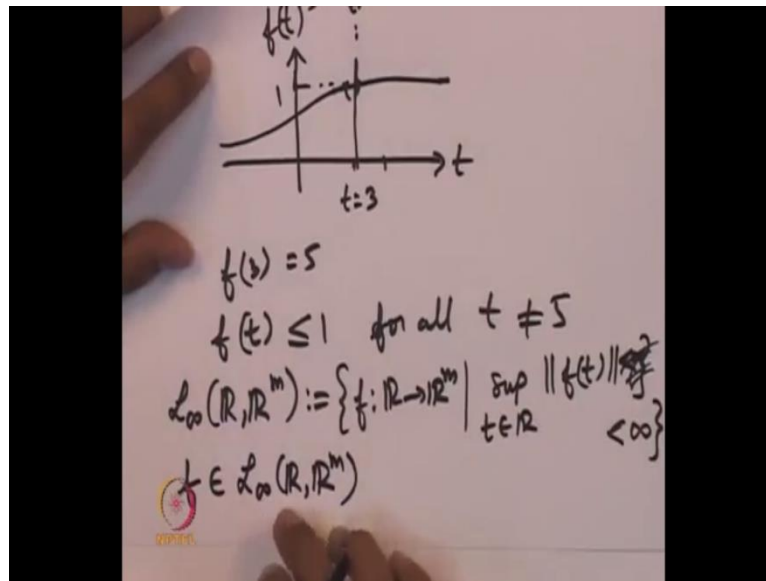 f(t)
1
t
t=3
f(3) = 5
f(t) ≤ 1 for all t ≠ 5
L∞(ℝ,ℝᵐ) := {f:ℝ→ℝᵐ | sup ||f(t)||
t∈ℝ <∞}
f ∈ L∞(ℝ,ℝᵐ)
NPTEL